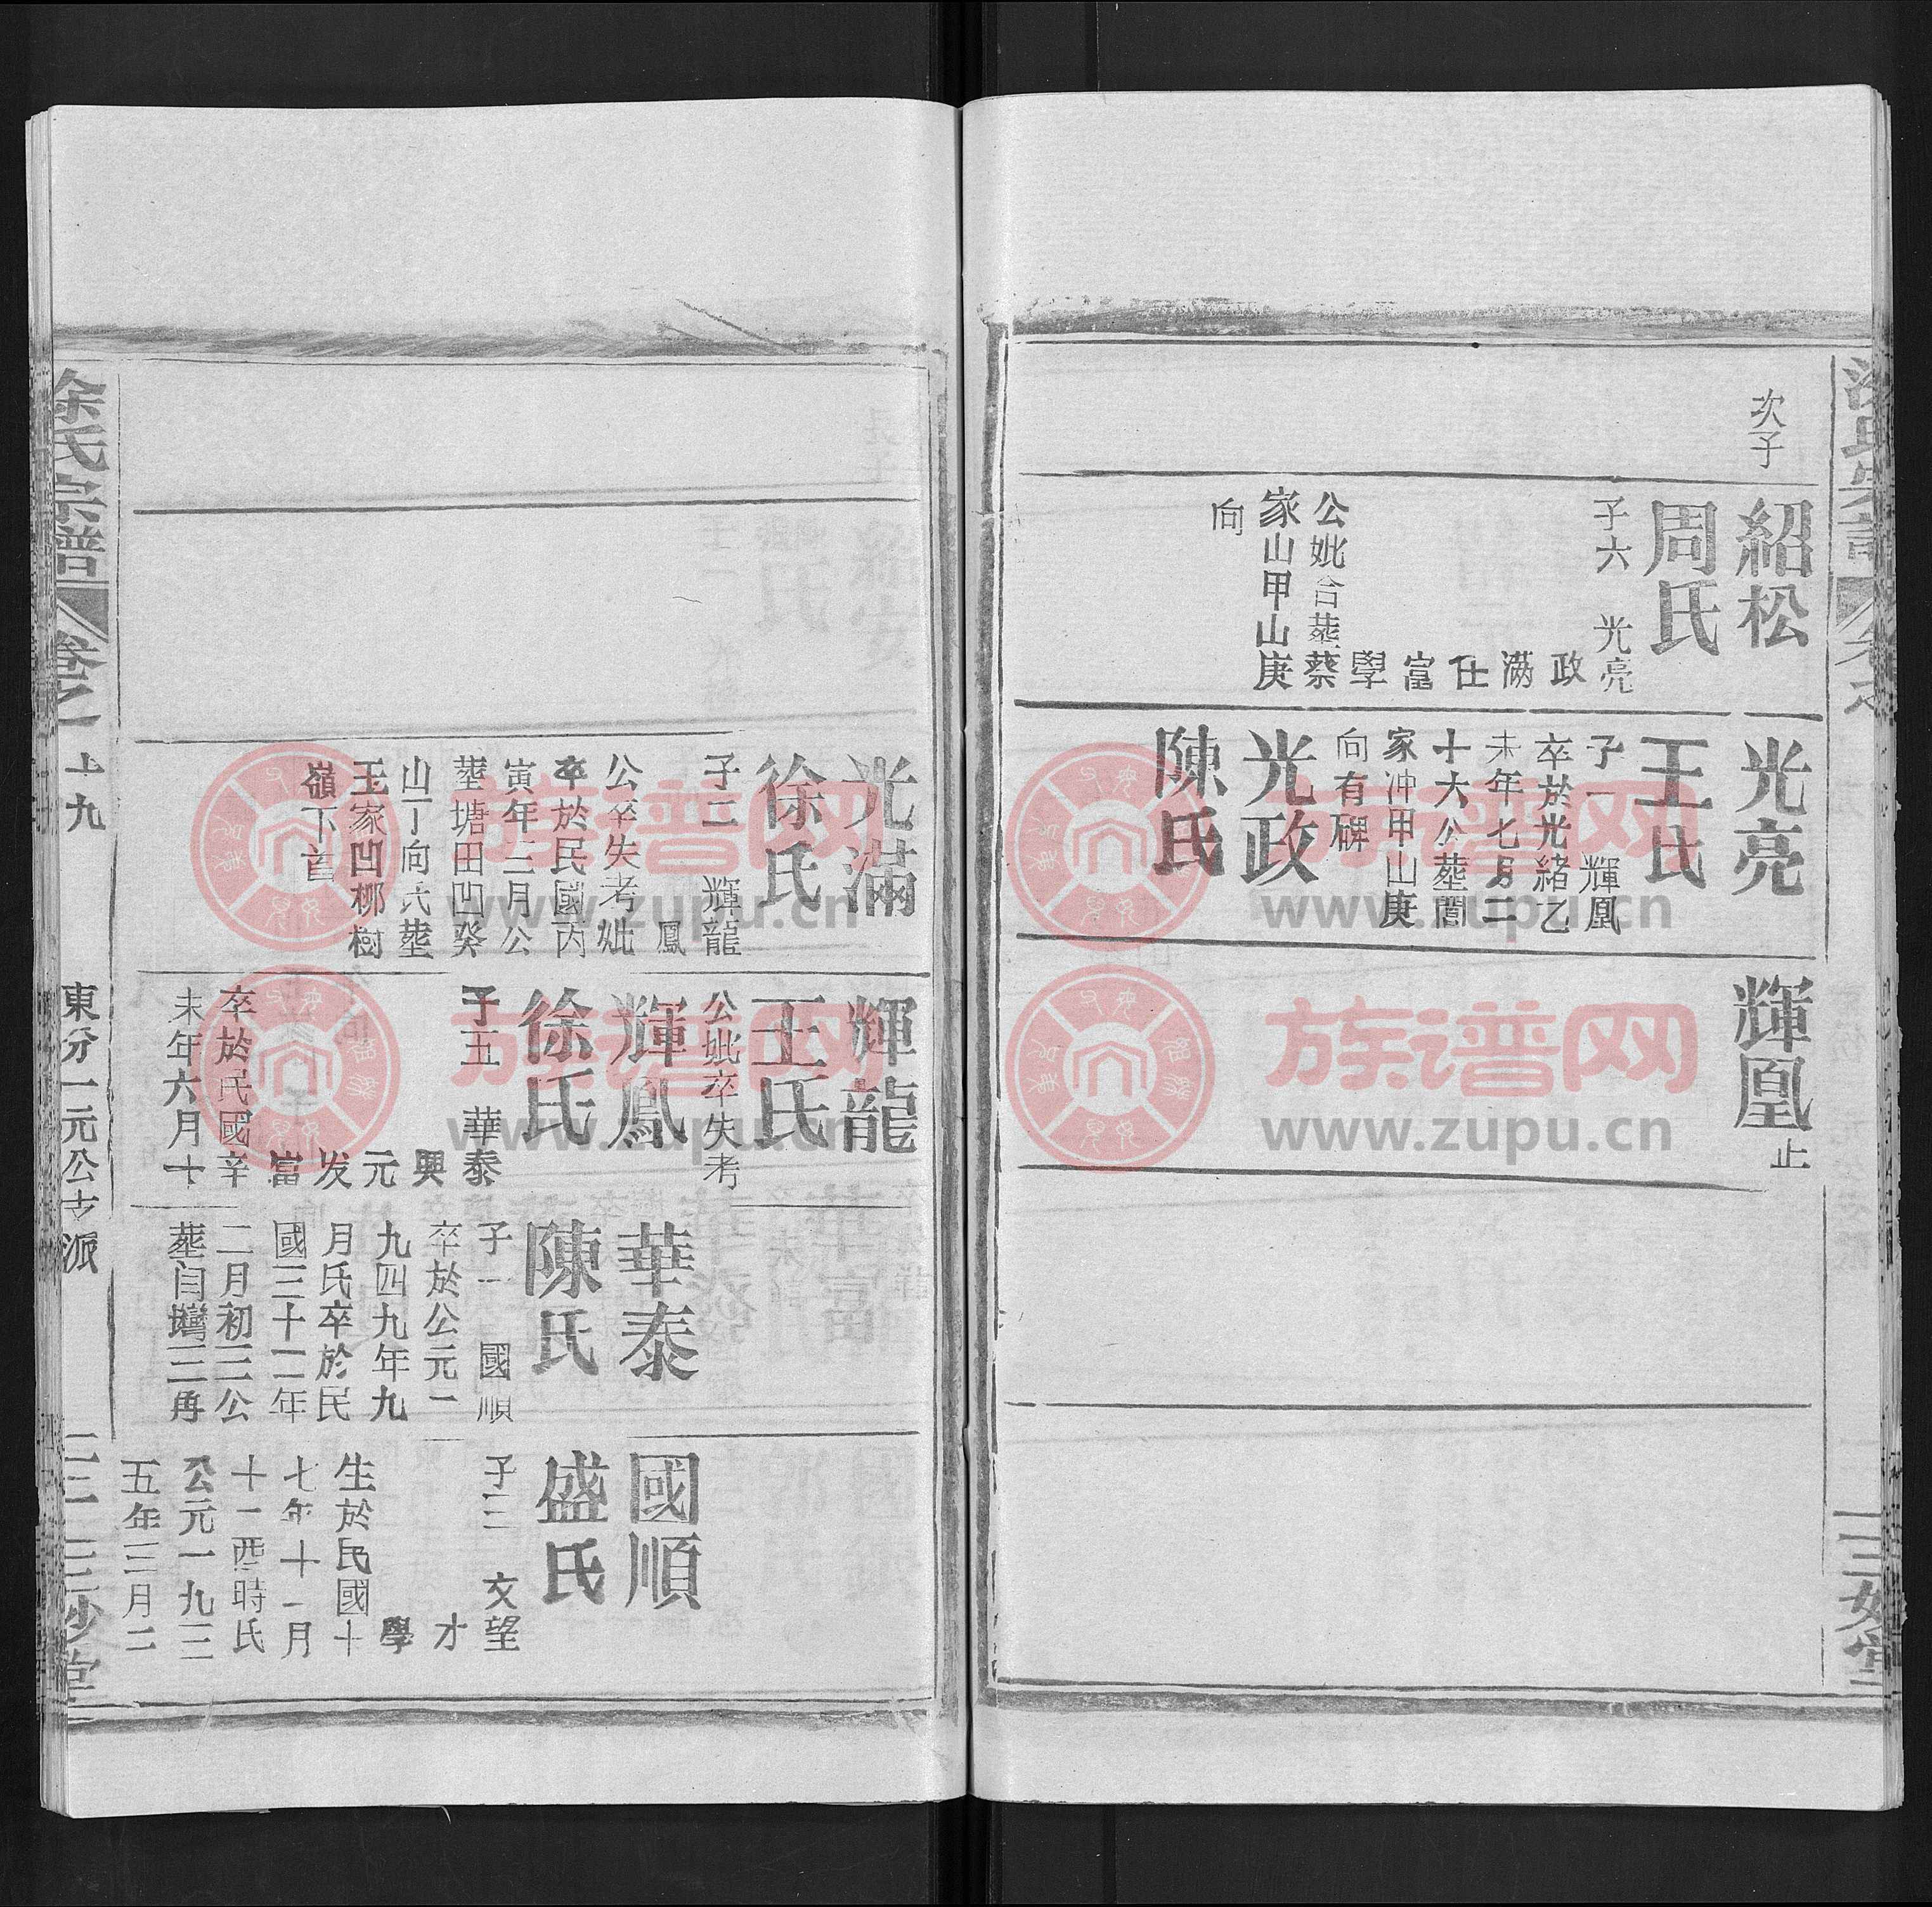 次子
紹松
周氏
子六 光亮
政
滿
仕
富
學
公妣合塟蔡
家山甲山庚
向
光亮
王氏
子一 輝凰
卒於光緒乙
未年七月二
十六公塟誾
家冲甲山庚
向有碑
光政
陳氏
輝凰 止
三妙堂
光滿
徐氏
子二 輝龍
鳳
公卒失考妣
卒於民國丙
寅年三月公
塟塘田凹癸
山丁向氏塟
玉家凹梛樹
嶺下首
輝龍
王氏
公妣卒失考
輝鳳
徐氏
子五 華泰
興
元
发
富
卒於民國辛
未年六月十
華泰
陳氏
子一 國順
卒於公元一
九四九年九
月氏卒於民
國三十二年
二月初三公
塟闫塆三角
國順
盛氏
子三 文望
才
學
生於民國十
七年十一月
十一酉時氏
公元一九三
五年三月二
徐氏宗譜
卷之
十九
東分一元公支派
三妙堂
族谱网
www.zupu.cn
族谱网
www.zupu.cn
族谱网
www.zupu.cn
族谱网
www.zupu.cn